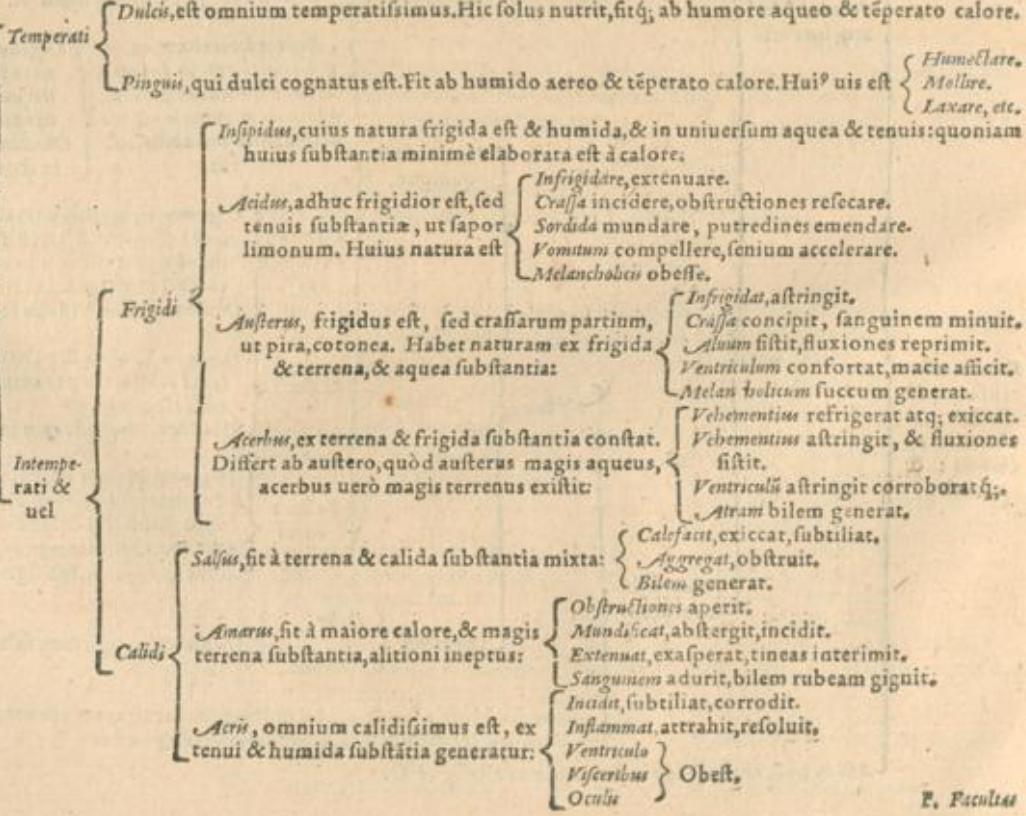 Temperati
Dulcis, eſt omnium temperatiſsimus. Hic ſolus nutrit, fitq́; ab humore aqueo & tẽperato calore.
Pinguis, qui dulci cognatus eſt. Fit ab humido aereo & tẽperato calore. Huiꝰ uis eſt
Humectare.
Mollire.
Laxare, etc.
Intempe-
rati &
uel
Frigidi
Inſipidus, cuius natura frigida eſt & humida, & in uniuerſum aquea & tenuis: quoniam
huius ſubſtantia minimè elaborata eſt à calore.
Acidus, adhuc frigidior eſt, ſed
tenuis ſubſtantiæ, ut ſapor
limonum. Huius natura eſt
Infrigidare, extenuare.
Craſſa incidere, obſtructiones reſecare.
Sordida mundare, putredines emendare.
Vomitum compellere, ſenium accelerare.
Melancholicis obeſſe.
Auſterus, frigidus eſt, ſed craſſarum partium,
ut pira, cotonea. Habet naturam ex frigida
& terrena, & aquea ſubſtantia:
Infrigidat, aſtringit.
Craſſa concipit, ſanguinem minuit.
Aluum ſiſtit, fluxiones reprimit.
Ventriculum confortat, macie afficit.
Melan holicum ſuccum generat.
Acerbus, ex terrena & frigida ſubſtantia conſtat.
Differt ab auſtero, quòd auſterus magis aqueus,
acerbus uerò magis terrenus exiſtit:
Vehementius refrigerat atq; exiccat.
Vehementius aſtringit, & fluxiones
ſiſtit.
Ventriculũ aſtringit corroboratq́;.
Atram bilem generat.
Calidi
Salſus, fit à terrena & calida ſubſtantia mixta:
Calefacit, exiccat, ſubtiliat.
Aggregat, obſtruit.
Bilem generat.
Amarus, fit à maiore calore, & magis
terrena ſubſtantia, alitioni ineptus:
Obſtructiones aperit.
Mundificat, abſtergit, incidit.
Extenuat, exaſperat, tineas interimit.
Sanguinem adurit, bilem rubeam gignit.
Acris, omnium calidiſsimus eſt, ex
tenui & humida ſubſtãtia generatur:
Incidit, ſubtiliat, corrodit.
Inflammat, attrahit, reſoluit.
Ventriculo
Viſceribus
Oculis
Obeſt.
F. Facultas